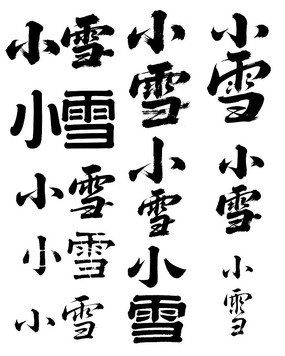 小雪
小雪
小雪
小雪
小雪
小雪
小雪
小雪
小雪
小雪
小雪